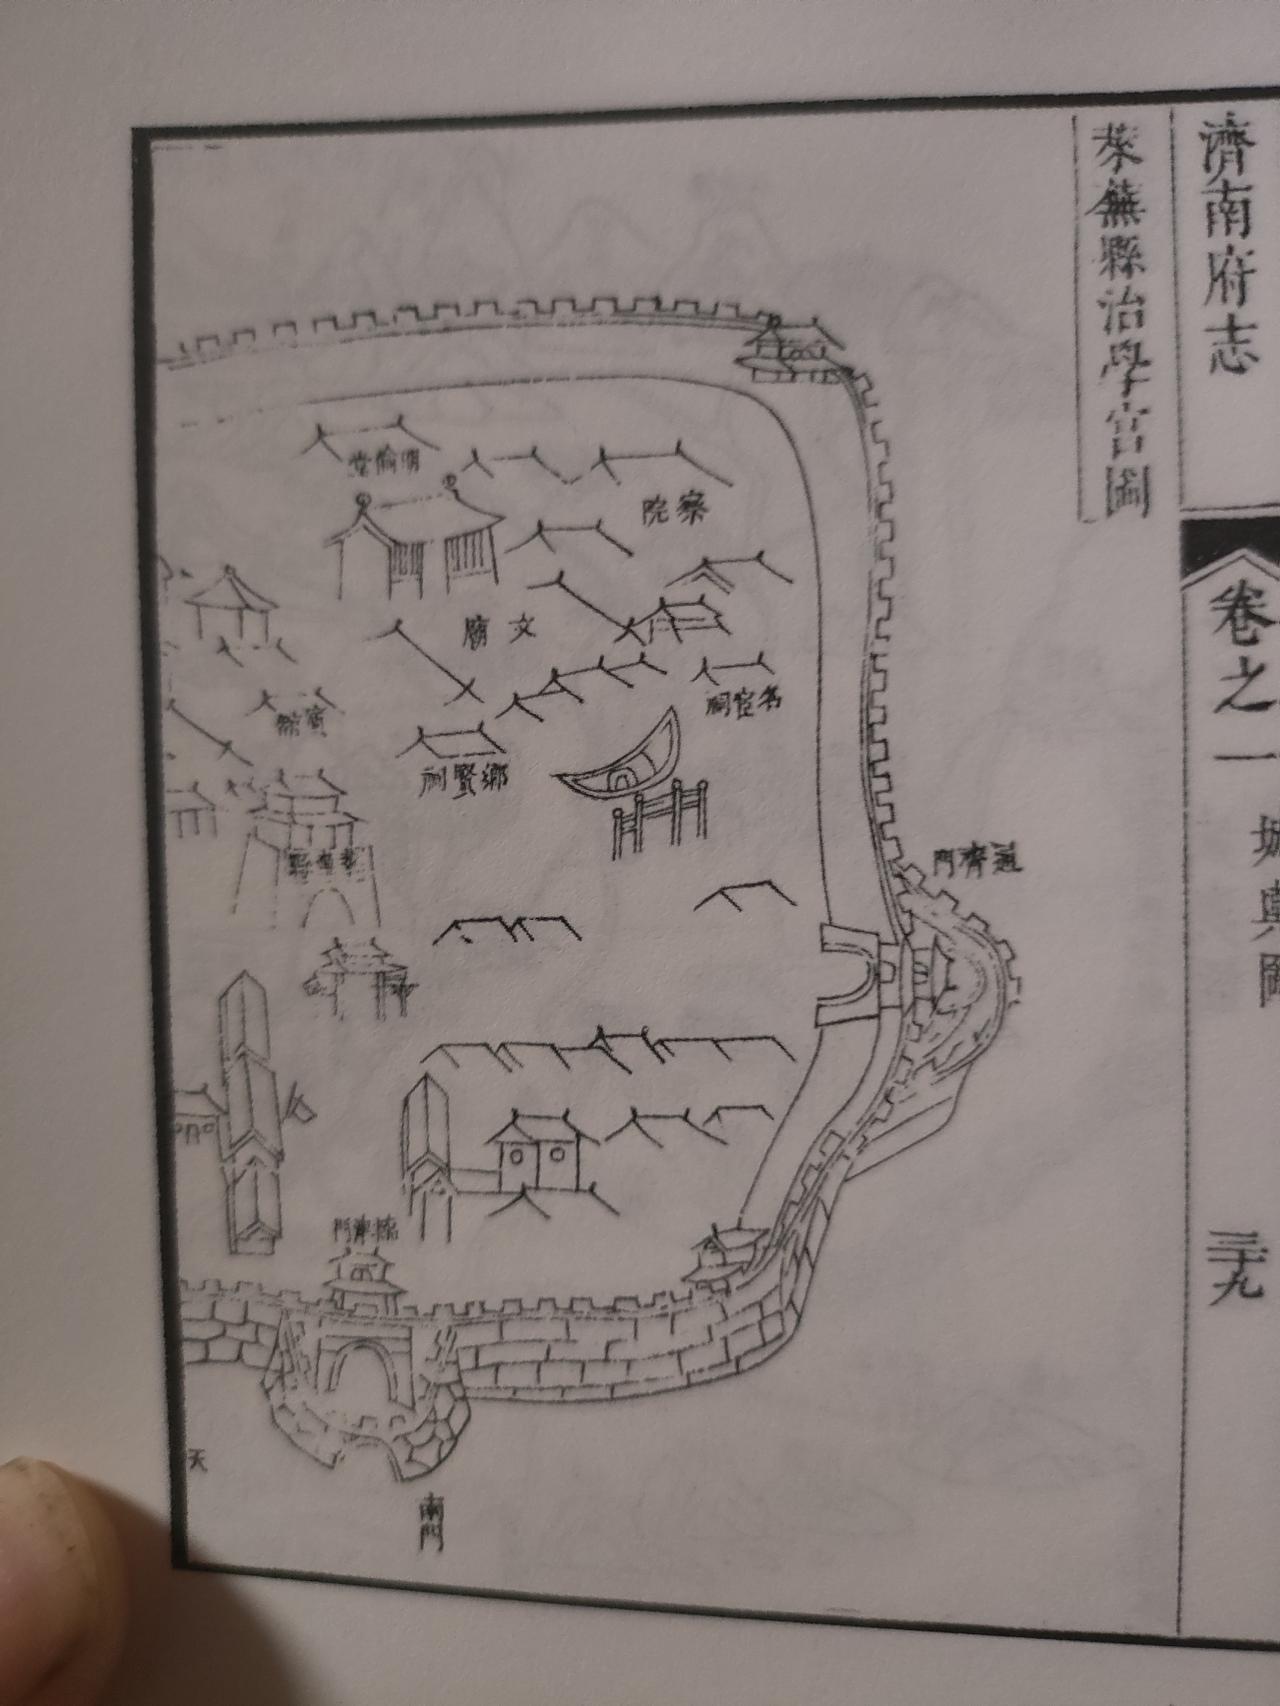 濟南府志
卷之一
城輿圖
三十九
萊蕪縣治學宮圖
明倫堂
察院
文廟
名宦祠
鄉賢祠
賓館
通齊門
南門
天